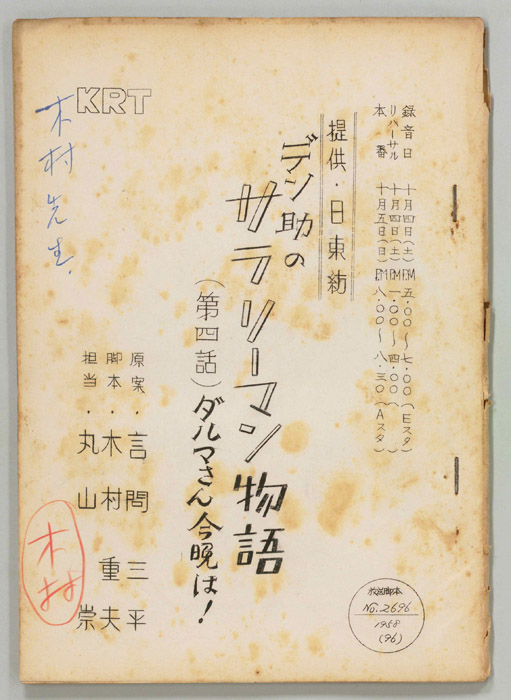 録音日 十月四日(土)PM五.〇〇〜七.〇〇(Eスタ)
リハーサル 十月四日(土)PM一.〇〇〜四.〇〇(  〃  )
本番 十月五日(日)PM八.〇〇〜八.三〇(Aスタ)
提供・日東紡
デン助の
サラリーマン物語
(第四話)ダルマさん今晩は!
原案・言問三平
脚本・木村重夫
担当・丸山崇
KRT
木村先生.
木村
放送脚本
No.2696
1958
(96)